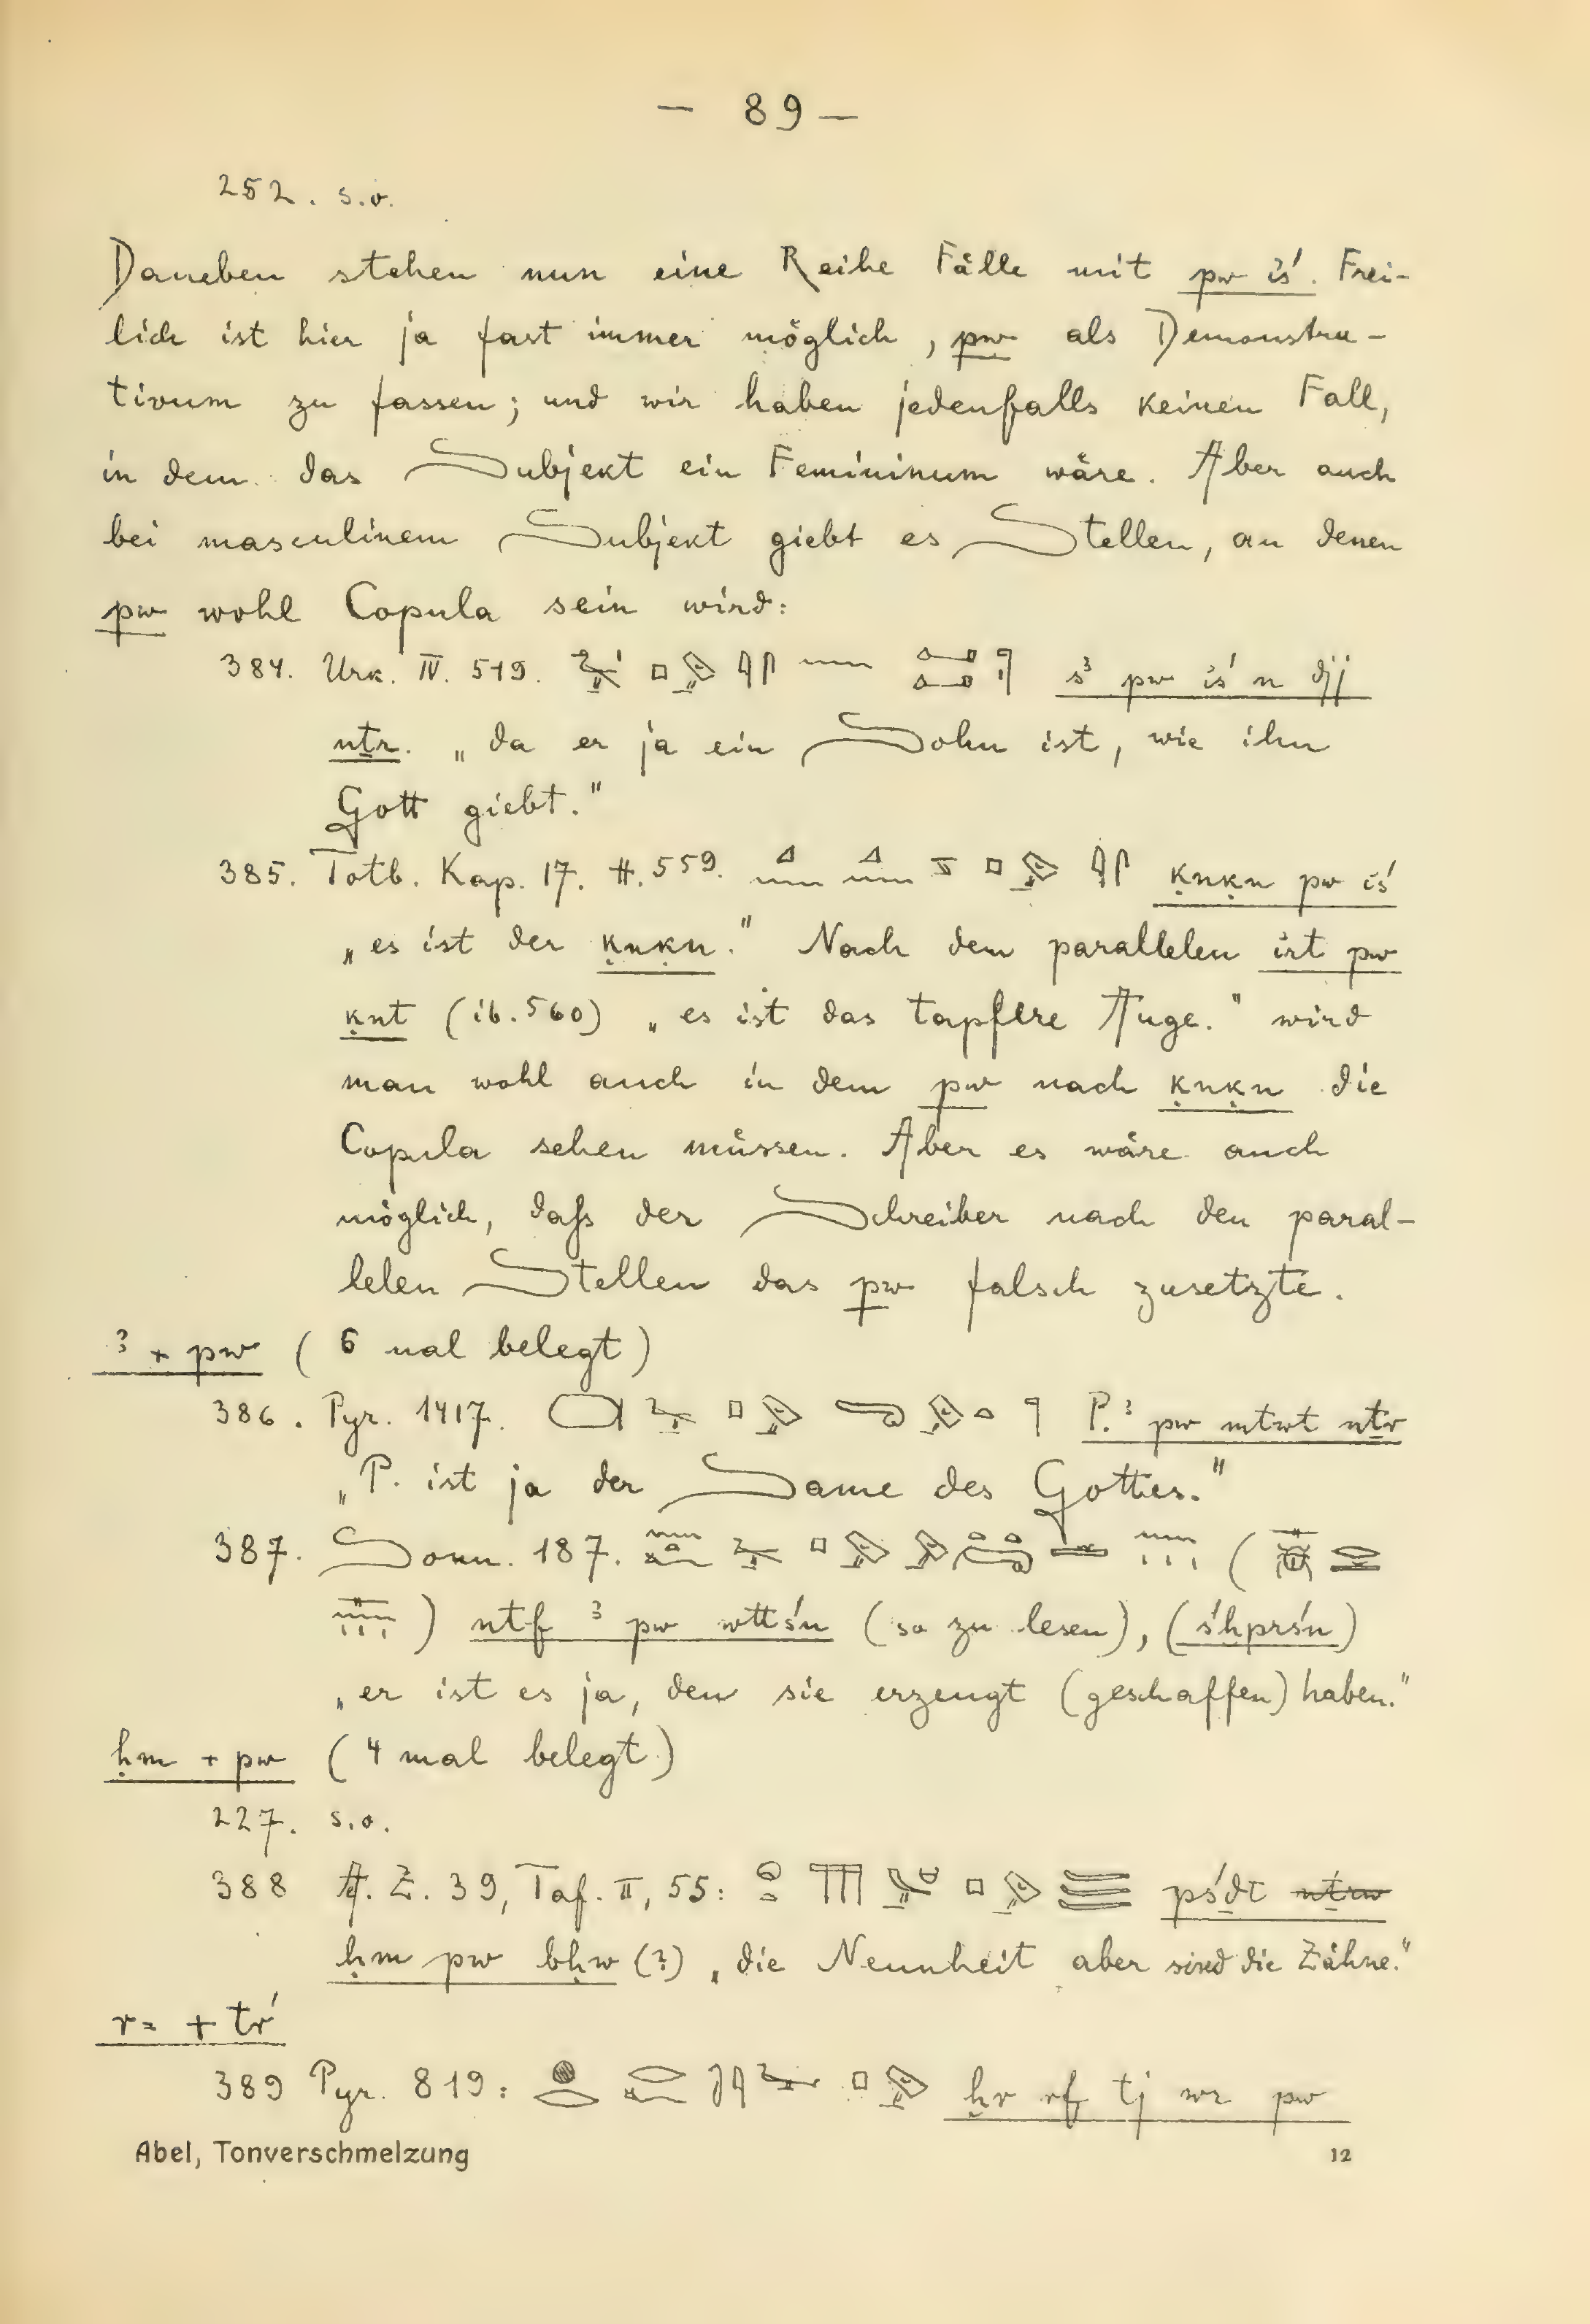 — 89 —
252. s.o.
Daneben stehen nun eine Reihe Fälle mit pw iś. Frei-
lich ist hier ja fast immer möglich, pw als Demonstra-
tivum zu fassen; und wir haben jedenfalls keinen Fall,
in dem das Subjekt ein Femininum wäre. Aber auch
bei masculinem Subjekt giebt es Stellen, an denen
pw wohl Copula sein wird:
384. Urk. IV. 519. sꜣ pw iś n djj
nṯr. „da er ja ein Sohn ist, wie ihn
Gott giebt."
385. Totb. Kap. 17. H. 559. ḳnḳn pw iś
„es ist der ḳnḳn." Nach dem parallelen irt pw
ḳnt (ib. 560) „es ist das tapfere Auge." wird
man wohl auch in dem pw nach ḳnḳn die
Copula sehen müssen. Aber es wäre auch
möglich, daß der Schreiber nach den paral-
lelen Stellen das pw falsch zusetzte.
ꜣ + pw (6 mal belegt)
386. Pyr. 1417. P. ꜣ pw mtwt nṯr
„P. ist ja der Same des Gottes."
387. Sonn. 187. (
) ntf ꜣ pw wttśn (so zu lesen), (śḫprśn)
„er ist es ja, den sie erzeugt (geschaffen) haben."
ḥm + pw (4 mal belegt)
227. s.o.
388 Ä. Z. 39, Taf. II, 55: pśḏt nṯrw
ḥm pw bḥw (?) „die Neunheit aber sind die Zähne."
r= + tr
389 Pyr. 819: ḫr rf tj wr pw
Abel, Tonverschmelzung 12